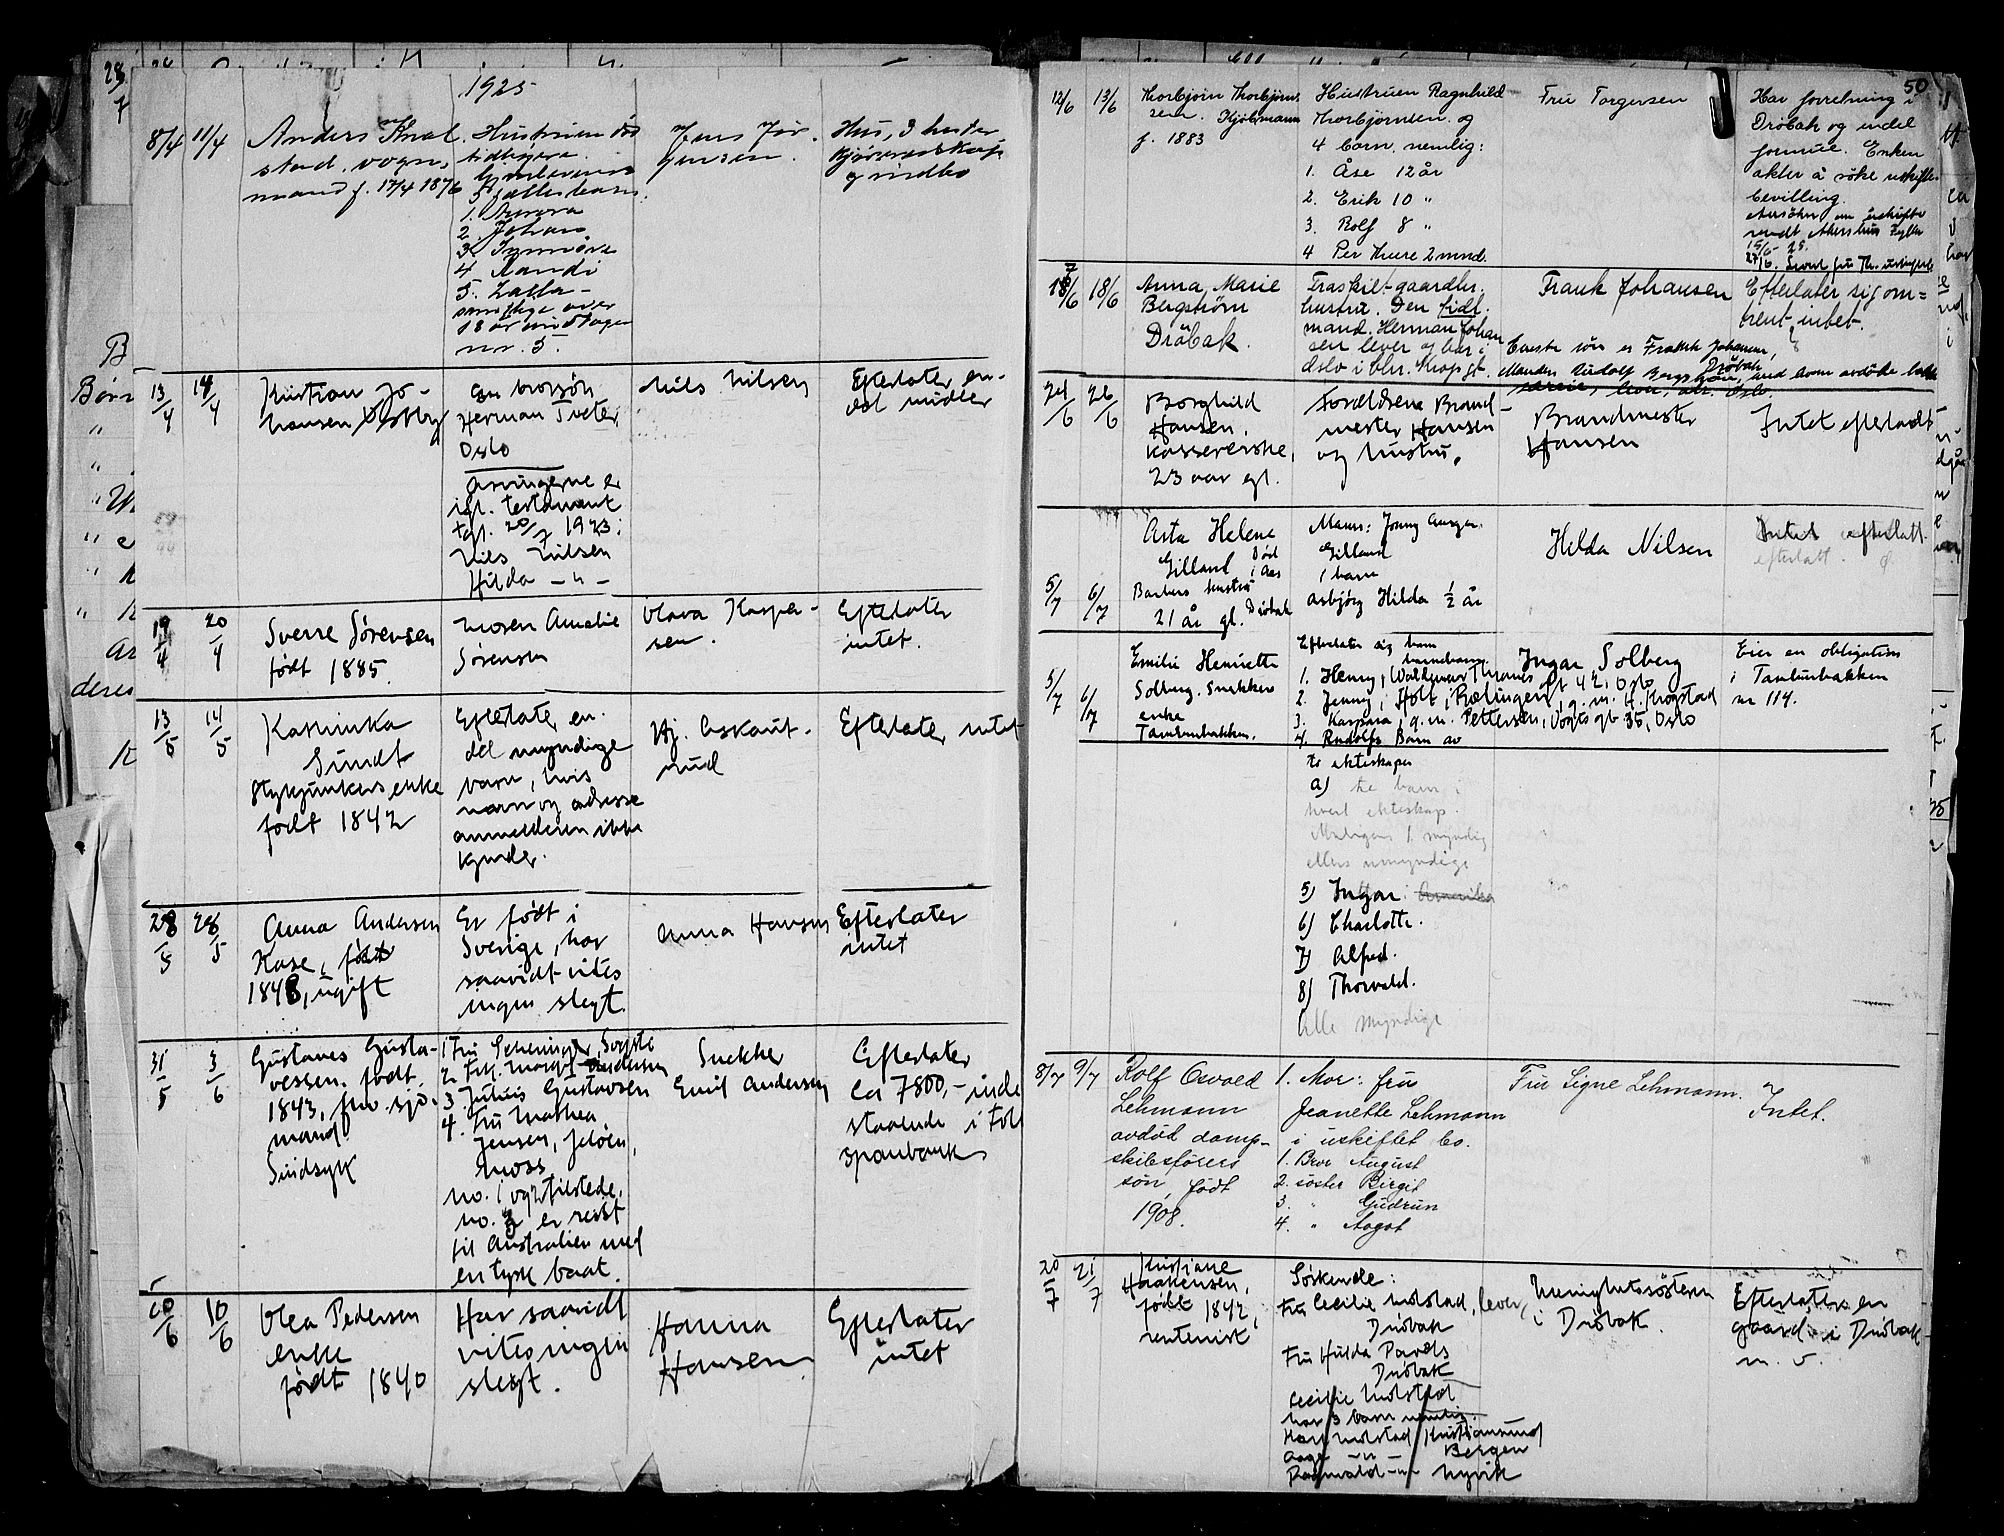 1925
8/4 11/4
Anders Knal-
stad, vogn-
mand f. 17/4 1876
Hustruen död
tidligere.
5 fællesbarn
1. Aurora
2. Johan
3.
4. Randi
5.
samtlige over
18 år undtagen
nr. 5.
Jens Jör-
gensen.
Hus, 3 hester
kjøreredskap
og indbo
13/4 14/4
Kristian Jo-
hansen Østby
En brorsön
Herman Tveter,
Oslo
Arvingerne er
igl. testament
tgl. 20/7 1923:
Nils Nilsen
Hilda — " —
Nils Nilsen
Efterlater en-
del midler
19/4 20/4
Sverre Sørensen
født 1885.
Moren Amalie
Sørensen
Olava Kasper-
sen.
Efterlater
intet.
13/5 14/5
Kathinka
Sundt
Stykjunkers enke
født 1842
Efterlater en-
del myndige
barn, hvis
navn og adresse
anmelderen ikke
kjender.
Hj. Askaut-
rud
Efterlater intet
28/5 28/5
Anna Andersen
Kase, født
1848, ugift
Er født i
Sverige, har
saavidt vites
ingen slegt.
Anna Hansen
Efterlater
intet
31/5 3/6
Gustaves Gusta-
vessen. født
1843, fhv. sjö-
mand
Sindsyk
1 Fru
2. Frk. Andersen
3. Julius Gustavsen
4. Fru Mathea
Jensen, Jeløen,
Moss
No. 1 og 2 tilstede.
No. 3 er reist
til Australien med
en tysk baat.
Snekker
Emil Andersen
Efterlater
ca 7800,- inde
staaende i Foll
sparebank
10/6 10/6
Olea Pedersen
enke
født 1840
Har saavidt
vites ingen
slegt.
Hanna
Hansen
Efterlater
intet
50
12/6 13/6
Thorbjørn Thorbjørn-
sen. Kjøbmann
f. 1883
Hustruen Ragnhild
Thorbjörnsen og
4 barn nemlig:
1. Åse 12 år
2. Erik 10 "
3. Rolf 8 "
4 Per Huse 2 mnd.
Fru Torgersen
Har forretning i
Dröbak og endel
formue. Enken
akter å söke uskifte-
bevilling.
Ansökn. om uskifte
sendt Akershus Fylke
15/6- 25.
18/6 18/6
Anna Marie
Bergström
Dröbak.
Fraskilt gaardbr.
hustru. Den fidt.
mand. Herman Johan
sen lever og bor i
Oslo i
Frank Johansen
Eneste sön er Frank Johansen,
Dröbak
Manden Rudolf Bergström,
Efterlater sig om=
trent intet.
24/6 26/6
Borghild
Hansen,
Kassererske,
23 aar gl.
Forældrene Brand-
mester Hansen
og hustru.
Brandmester
Hansen
Intet efterladt
5/7 6/7
Asta Helene
Gilland död i Aas
Barbers hustru
21 år gl. Dröbak
Mann: Jonny
Gilland
1 barn
Asbjörg Hilda 1/2 år
Hilda Nilsen
Intet efterlatt.
efterlatt.
5/7 6/7
Emilie Henriette
Solberg. Snekker
enke
Tamburbakken.
Efterlater sig barn
1. Henry, Waldemar Thranes gt 42, Oslo
2. Jenny, Holt, i Rælingen, g. m. H. Krogstad
3. Kaspara, g. m. Pettersen, Vogts gt 35, Oslo
4. Rudolfs Barn av
to ekteskaper
a) to barn i
hvert ekteskap.
Muligens 1 myndig
ellers umyndige
5) Ingar. Amerika
6) Charlotte.
7) Alfred.
8) Thorvald.
Alle myndige
Ingar Solberg
Eier en obligation
i Tamburbakken
nr 114.
8/7 9/7
Rolf Osvald
Lehmann
avdöd damp-
skibsförers
sön, født
1908.
1. Mor: fru
Jeanette Lehmann
i uskiftet bo.
1. Bror August
2. söster Birgit
3. " Gudrun
4. " Aagot
Fru Signe Lehmann.
Intet.
20/7 21/7
Kristiane
Haakensen,
født 1842,
rentenist
Søskende:
Fru Cecilie Molstad, lever,
Dröbak
Fru Hulda Parels
Dröbak
Cecilie Molstad
har 3 barn nemlig.
Molstad Kristiansund
Aage — " — Bergen
Ragnvald — " —
Menighetssösteren
i Dröbak.
Efterlater en
gaard i Dröbak
nr. 5.